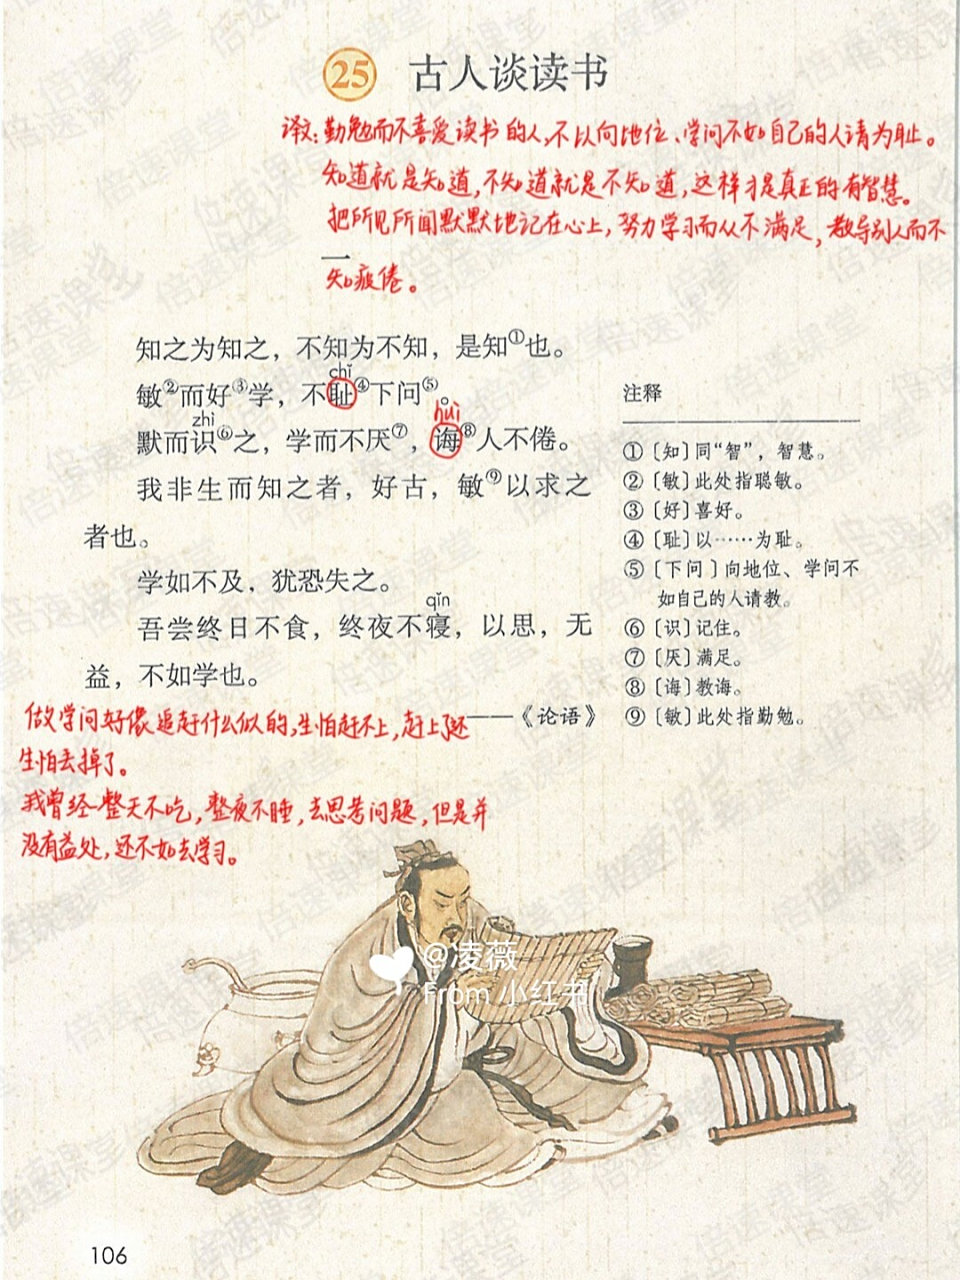 25 古人谈读书
译文:勤勉而不喜爱读书的人,不以向地位、学问不如自己的人请为耻。
知道就是知道,不知道就是不知道,这样才是真正的有智慧。
把所见所闻默默地记在心上,努力学习而从不满足,教导别人而不
一
知疲倦。
知之为知之,不知为不知,是知①也。
chǐ
敏②而好③学,不耻④下问⑤。
zhì huì
默而识⑥之,学而不厌⑦,诲⑧人不倦。
我非生而知之者,好古,敏⑨以求之
者也。
学如不及,犹恐失之。
qǐn
吾尝终日不食,终夜不寝,以思,无
益,不如学也。
——《论语》
注释
①〔知〕同“智”,智慧。
②〔敏〕此处指聪敏。
③〔好〕喜好。
④〔耻〕以……为耻。
⑤〔下问〕向地位、学问不
如自己的人请教。
⑥〔识〕记住。
⑦〔厌〕满足。
⑧〔诲〕教诲。
⑨〔敏〕此处指勤勉。
做学问好像追赶什么似的,生怕赶不上,赶上了还
生怕丢掉了。
我曾经整天不吃,整夜不睡,去思考问题,但是并
没有益处,还不如去学习。
@凌薇
From 小红书
106
倍速课堂